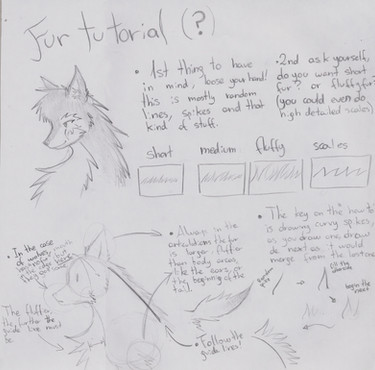 Fur tutorial (?)
• 1st thing to have
in mind, loose your hand!
this is mostly random
lines, spikes and that
kind of stuff.
• 2nd ask yourself,
do you want short
fur? or fluffy fur?
(you could even do
high detailed scales)
short
medium
fluffy
scales
• In the case
of wolves,
• Always in the
the fur
is larger, fluffier
than body areas,
like the ears, or
the beginning of the
tail.
• The key on the "how to"
is drawing curvy spikes,
as you draw one, draw
the next as it would
merge from the last one.
The fluffier
the
guide line must
be.
• Follow the
guide lines!
begin the
next